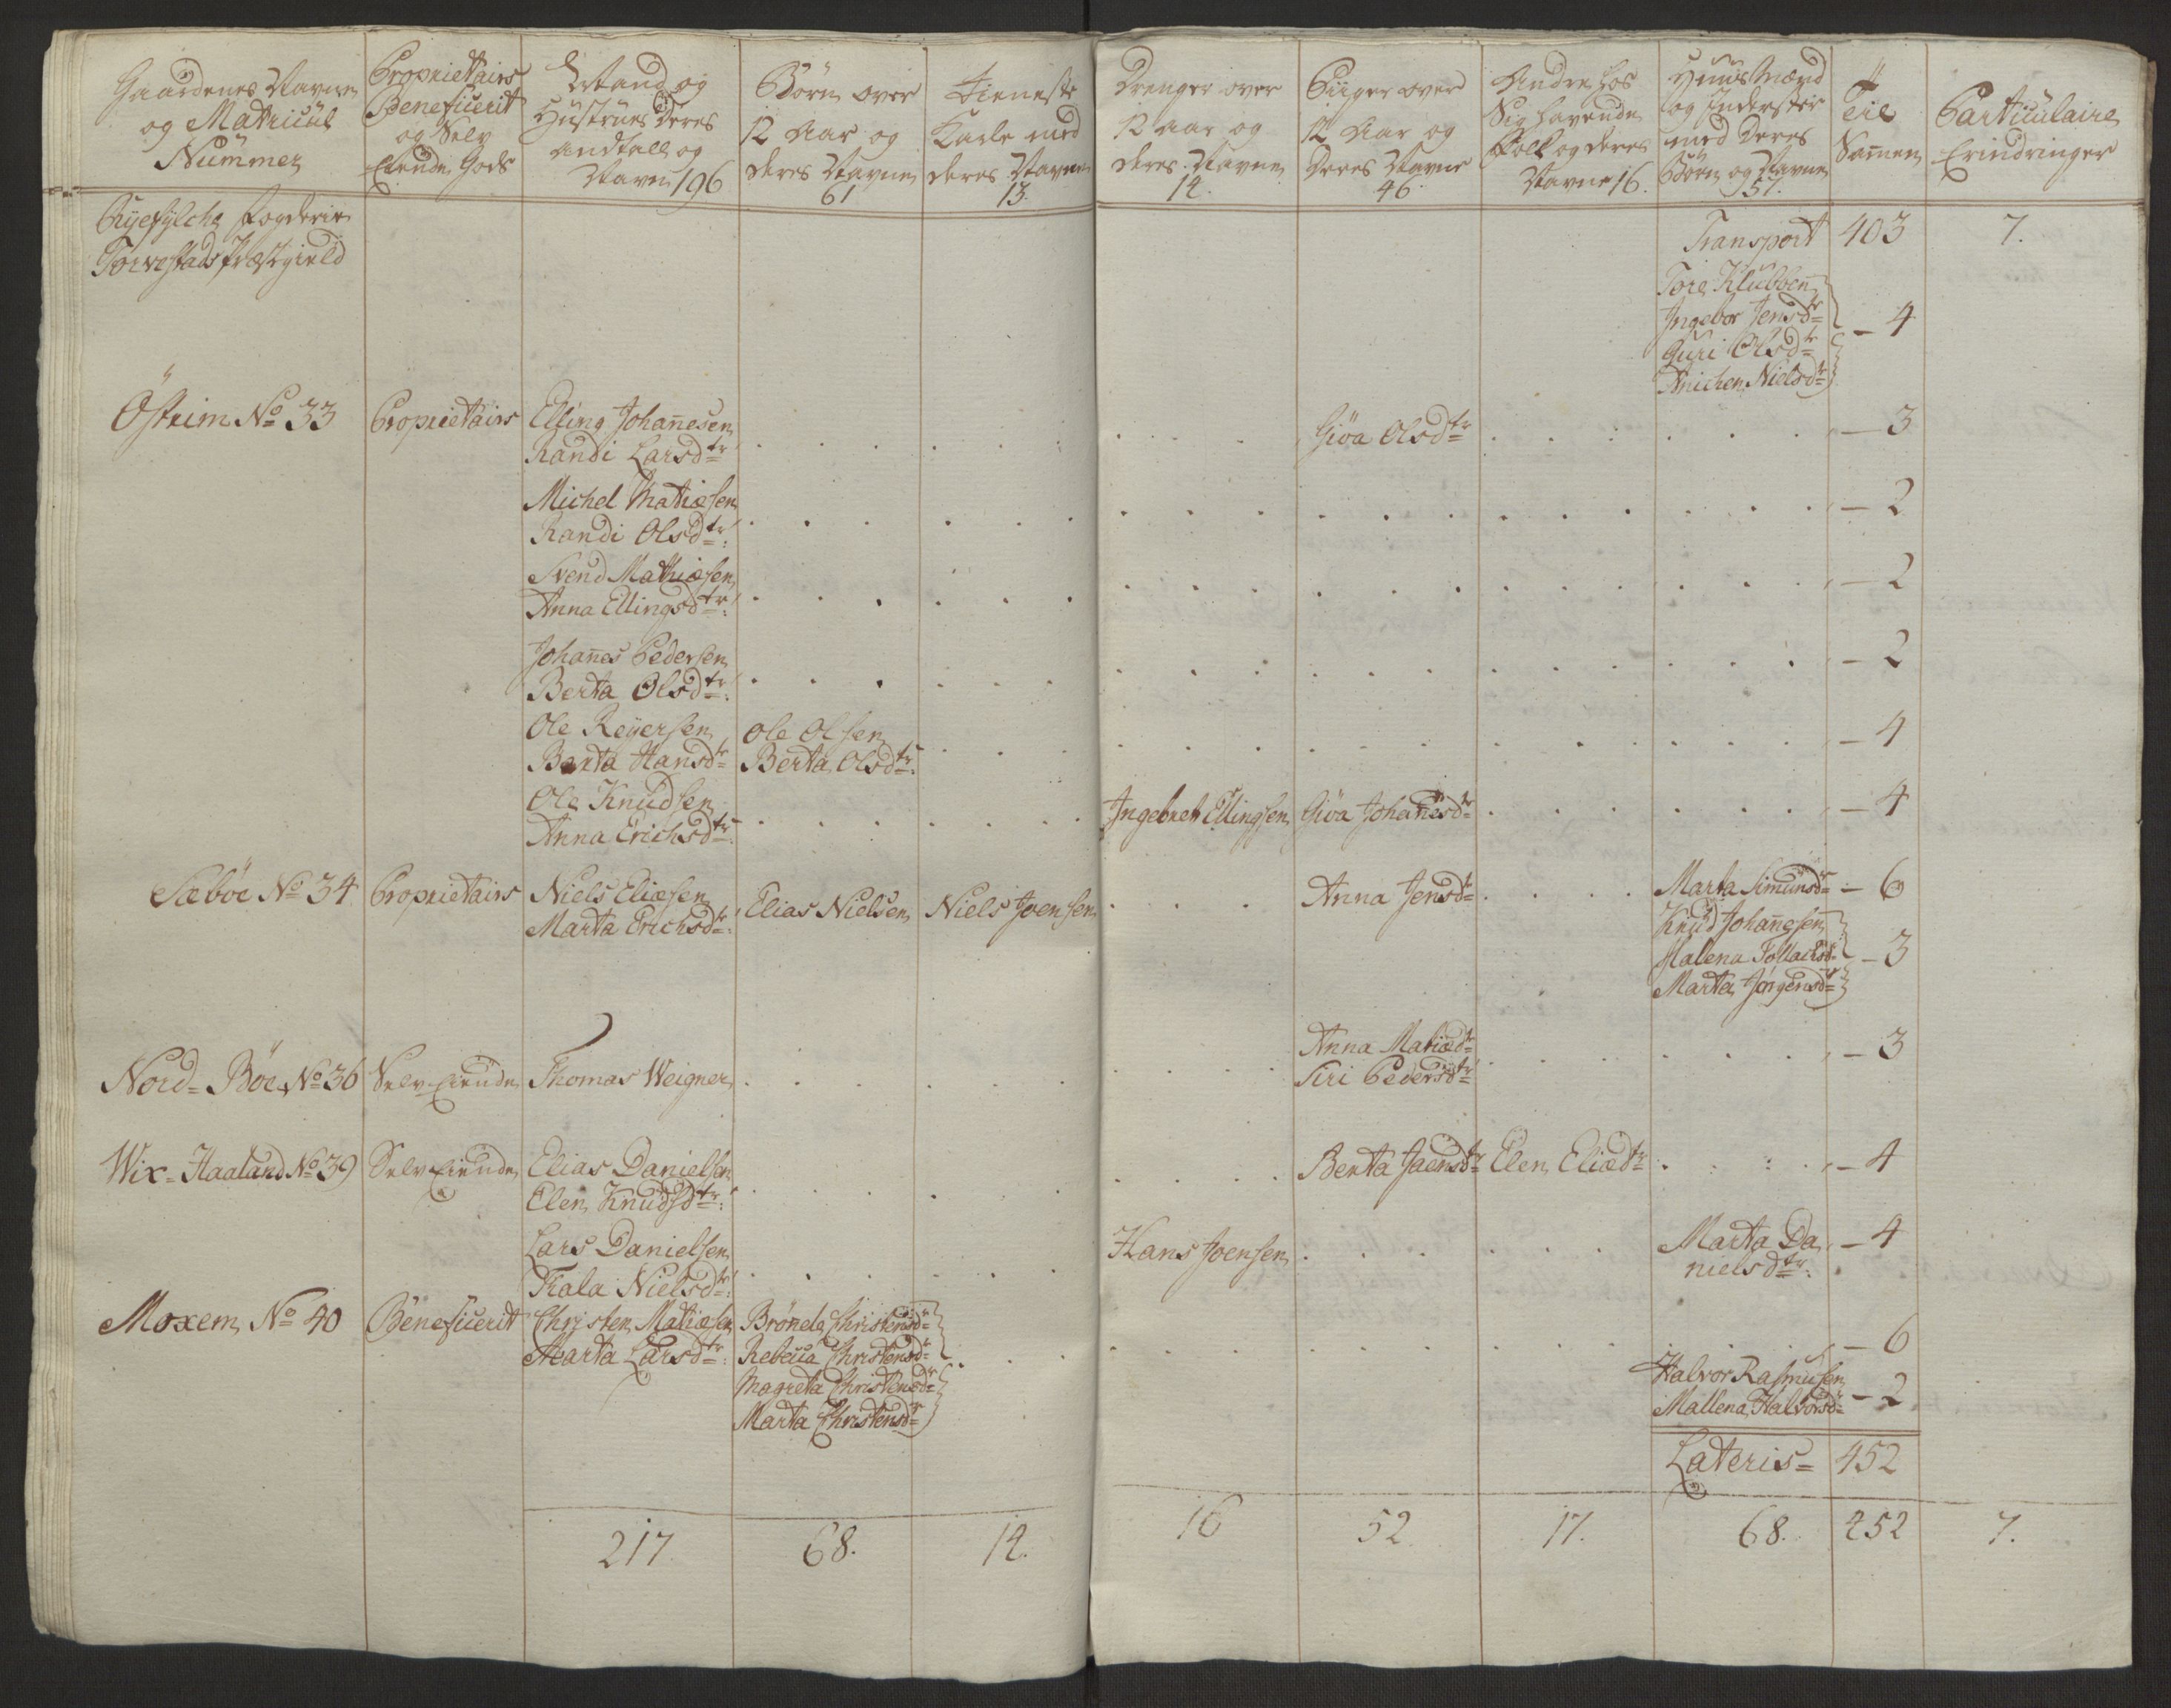 Gaardenes Navne
og Matricul
Nummer
Proprietairs
Beneficerit
og Selv
Eiende Gods
Mand og
Hustrues Deres
Andtall og
Navn 196
Börn over
12 Aar og
deres Navne
61
Tieneste
Karle med
deres Navne
13.
Drenger over
12 Aar og
deres Navne
14.
Piiger over
12 Aar og
Deres Navne
46.
Andre hos
Sig havende
Folk og deres
Navne 16.
Huus Mænd
og Inderster
med Deres
Börn og Navne
57.
Til
Samen
Particulaire
Erindringer
Ryefylche Fogderie
Torvestads Præstgield
Transport 403 7.
Tore Klubben
Ingebor Jensdtr
Guri Olsdtr
Anichen Nielsdtr
– 4
Östrim No 33 Proprietairs Elling Johanesen
Randi Larsdtr
Giöa Olsdtr – 3
Michel Matiesen
Randi Olsdtr – 2
Svend Mathiesen
Anna Ellingsdtr – 2
Johanes Pedersen
Berta Olsdtr – 2
Ole Reyersen Ole Olsen
Berta Hansdtr Berta Olsdtr – 4
Ole Knudsen
Anna Erichsdtr
Ingebret Ellingsen Giöa Johanesdtr – 4
Sæböe No 34 Proprietairs Niels Eliasen
Marta Erichsdtr
Elias Nielsen Niels Joensen Anna Jensdtr Marta Simunsdtr – 6
Knud Johanesen
Malena Tollachsdtr
Marta Jörgensdtr
– 3
Nord-Böe No 36 Selv Eiende Thomas Weigner
Anna Matiædtr
Siri Pedersdtr
– 3
Wix-Haaland No 39 Selv Eiende Elias Danielsen
Elen Knudsdtr
Berta Jaensdtr Elen Eliædtr – 4
Lars Danielsen
Kala Nielsdtr
Hans Joensen Marta Da
nielsdtr
– 4
Moxem No 40 Beneficerit Christen Matiesen
Marta Larsdtr
Brönele Christensdtr
Rebecca Christensdtr
Magreta Christensdtr
Marta Christensdtr
– 6
Halvor Rasmusen
Mallena Halvorsdtr
– 2
Lateris = 452
217 68. 14. 16 52 17. 68. 452 7.